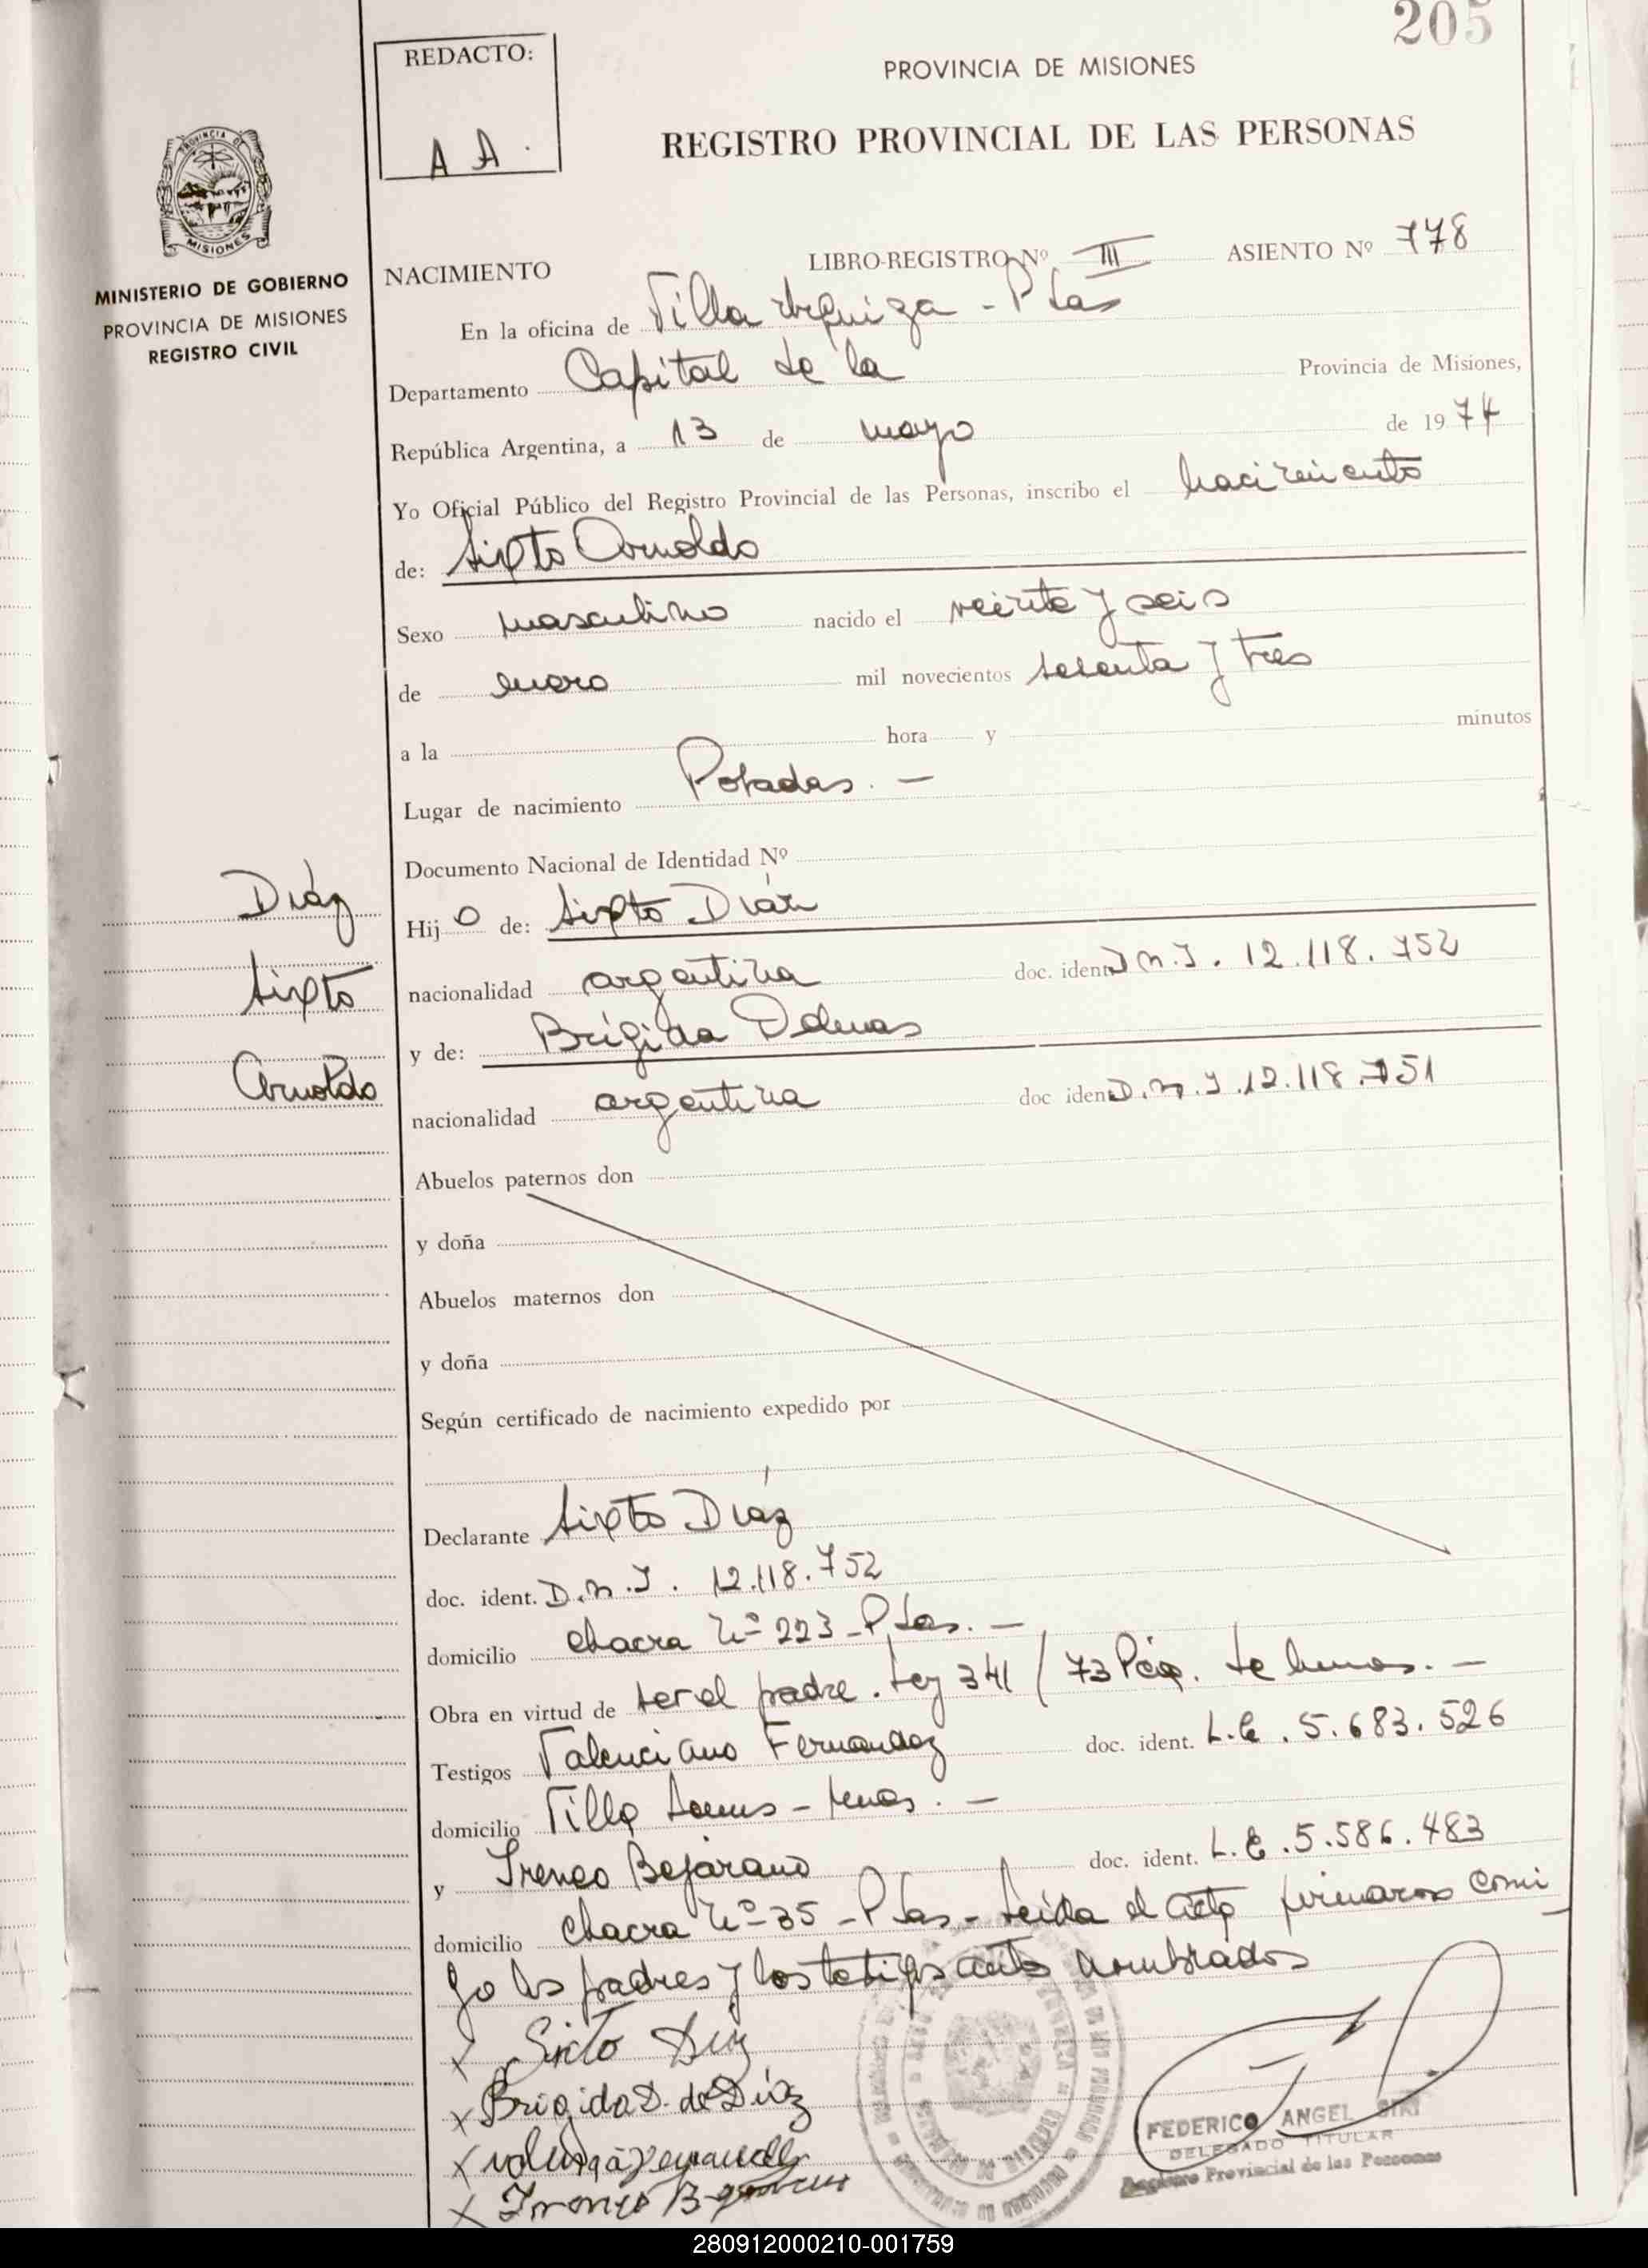 205
REDACTO:
A A.
PROVINCIA DE MISIONES
REGISTRO PROVINCIAL DE LAS PERSONAS
PROVINCIA DE MISIONES
MINISTERIO DE GOBIERNO
PROVINCIA DE MISIONES
REGISTRO CIVIL
NACIMIENTO LIBRO-REGISTRO Nº III ASIENTO Nº 778
En la oficina de Villa Urquiza - Pdas
Departamento Capital de la Provincia de Misiones,
República Argentina, a 13 de mayo de 1974
Yo Oficial Público del Registro Provincial de las Personas, inscribo el nacimiento
de: Sixto Arnoldo
Sexo masculino nacido el veinte y seis
de enero mil novecientos setenta y tres
a la hora y minutos
Lugar de nacimiento Posadas. -
Documento Nacional de Identidad Nº
Díaz
Sixto
Arnoldo
Hijo de: Sixto Díaz
nacionalidad argentina doc. ident. D.N.I. 12.118.752
y de: Brígida Delmas
nacionalidad argentina doc iden D.N.I. 12.118.751
Abuelos paternos don
y doña
Abuelos maternos don
y doña
Según certificado de nacimiento expedido por
Declarante Sixto Díaz
doc. ident. D.N.I. 12.118.752
domicilio chacra Nº 223 - Pdas. -
Obra en virtud de ser el padre. Ley 341/73
Testigos Valenciano Fernandez doc. ident. L.E. 5.683.526
domicilio Villa
y Ireneo Bejarano doc. ident. L.E. 5.586.483
domicilio chacra Nº 35 - Pdas - Leída el acta firmaron conmi
go los padres y los testigos ante nombrados
x Sixto Diaz
x Brigida D. de Díaz
x
x Ireneo Bejarano
FEDERICO ANGEL SIRI
DELEGADO TITULAR
Registro Provincial de las Personas
280912000210-001759